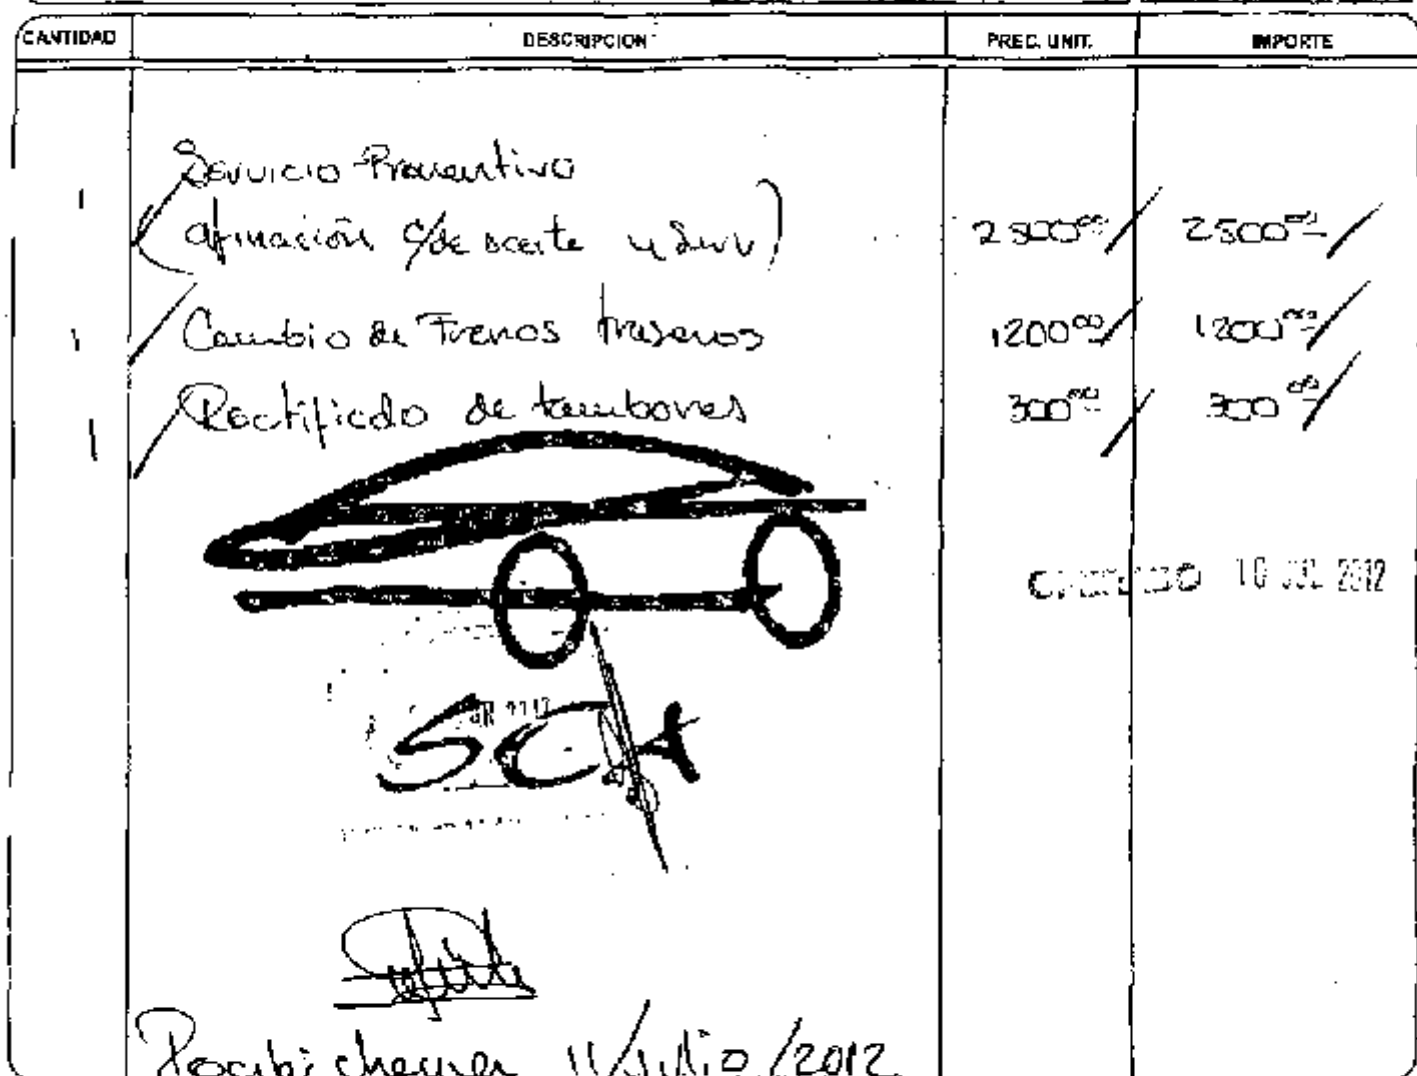 CANTIDAD DESCRIPCION PREC. UNIT. IMPORTE
Servicio Preventivo
1 (afinación c/de aceite y ) 2500.00 2500.00
1 Cambio de Frenos traseros 1200.00 1200.00
1 Rectificado de tambores 300.00 300.00
10 JUL 2012
SCA
Recibi cheque 11/Julio/2012